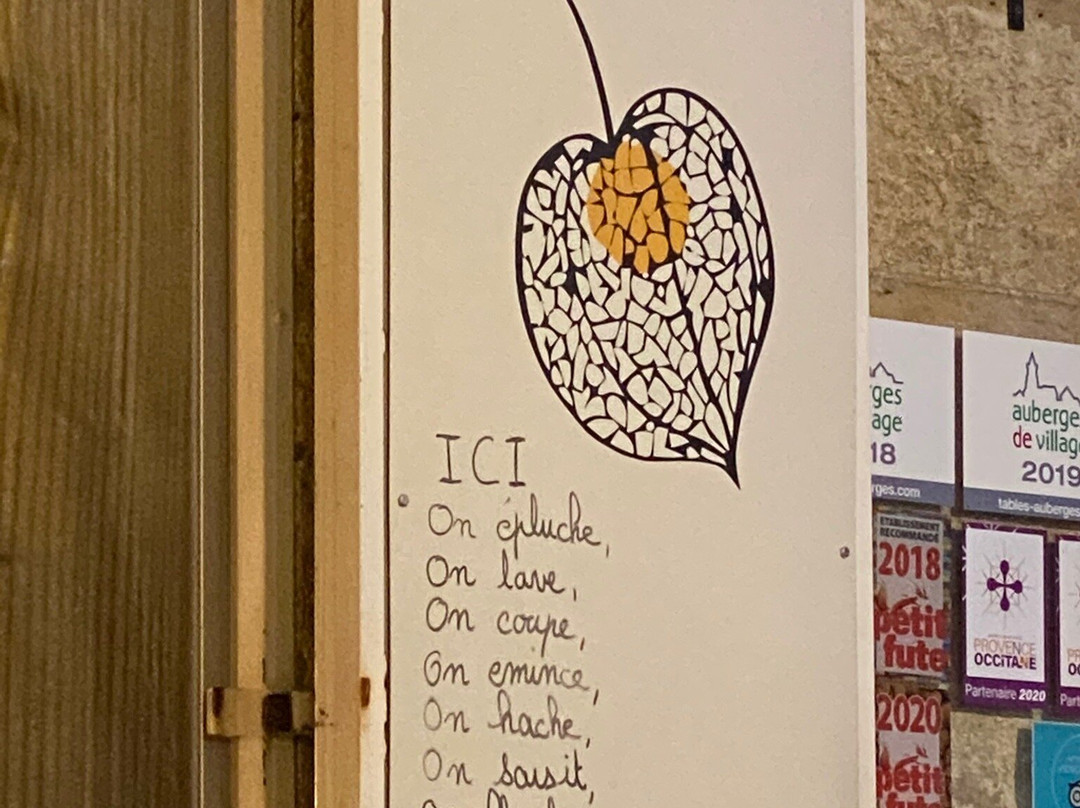 ICI
On épluche,
On lave,
On coupe,
On emince,
On hache,
On saisit,
ges
age
18
rges.com
auberge
de villag
2019
tables-auberges
ETABLISSEMENT
RECOMMANDÉ
2018
petit
fute
PROVENCE
OCCITANE
Partenaire 2020
2020
petit